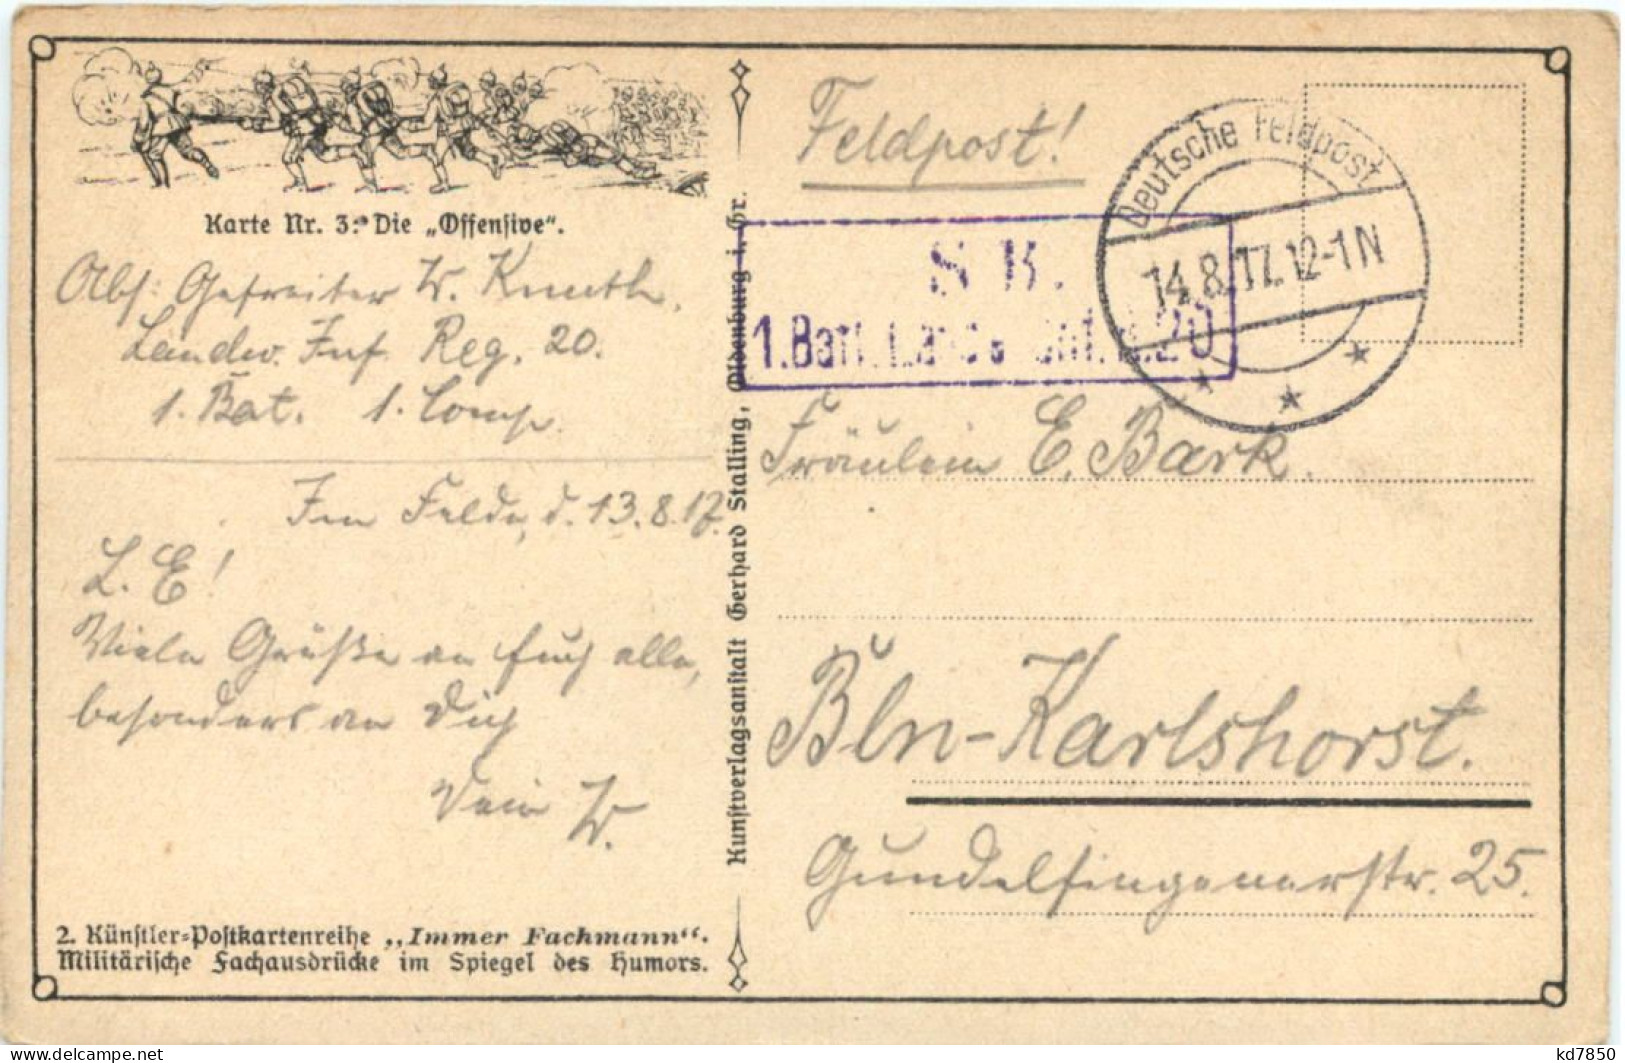 Karte Nr. 3: Die „Offensive“.
Abs: Gefreiter W. Knuth,
Landw. Inf. Reg. 20.
1. Bat. 1. Comp.
Im Felde, d. 13.8.17.
L. E!
Viele Grüße an Euch alle,
besonders an Dich
Dein W.
2. Künstler-Postkartenreihe „Immer Fachmann“.
Militärische Fachausdrücke im Spiegel des Humors.
Kunstverlagsanstalt Gerhard Stalling, Oldenburg i. Gr.
Feldpost!
Deutsche Feldpost
14.8.17.12-1N
S.B.
1.Batl. Inf. 20
Fräulein E. Bark.
Bln-Karlshorst.
Gundelfingenerstr. 25.
kd7850